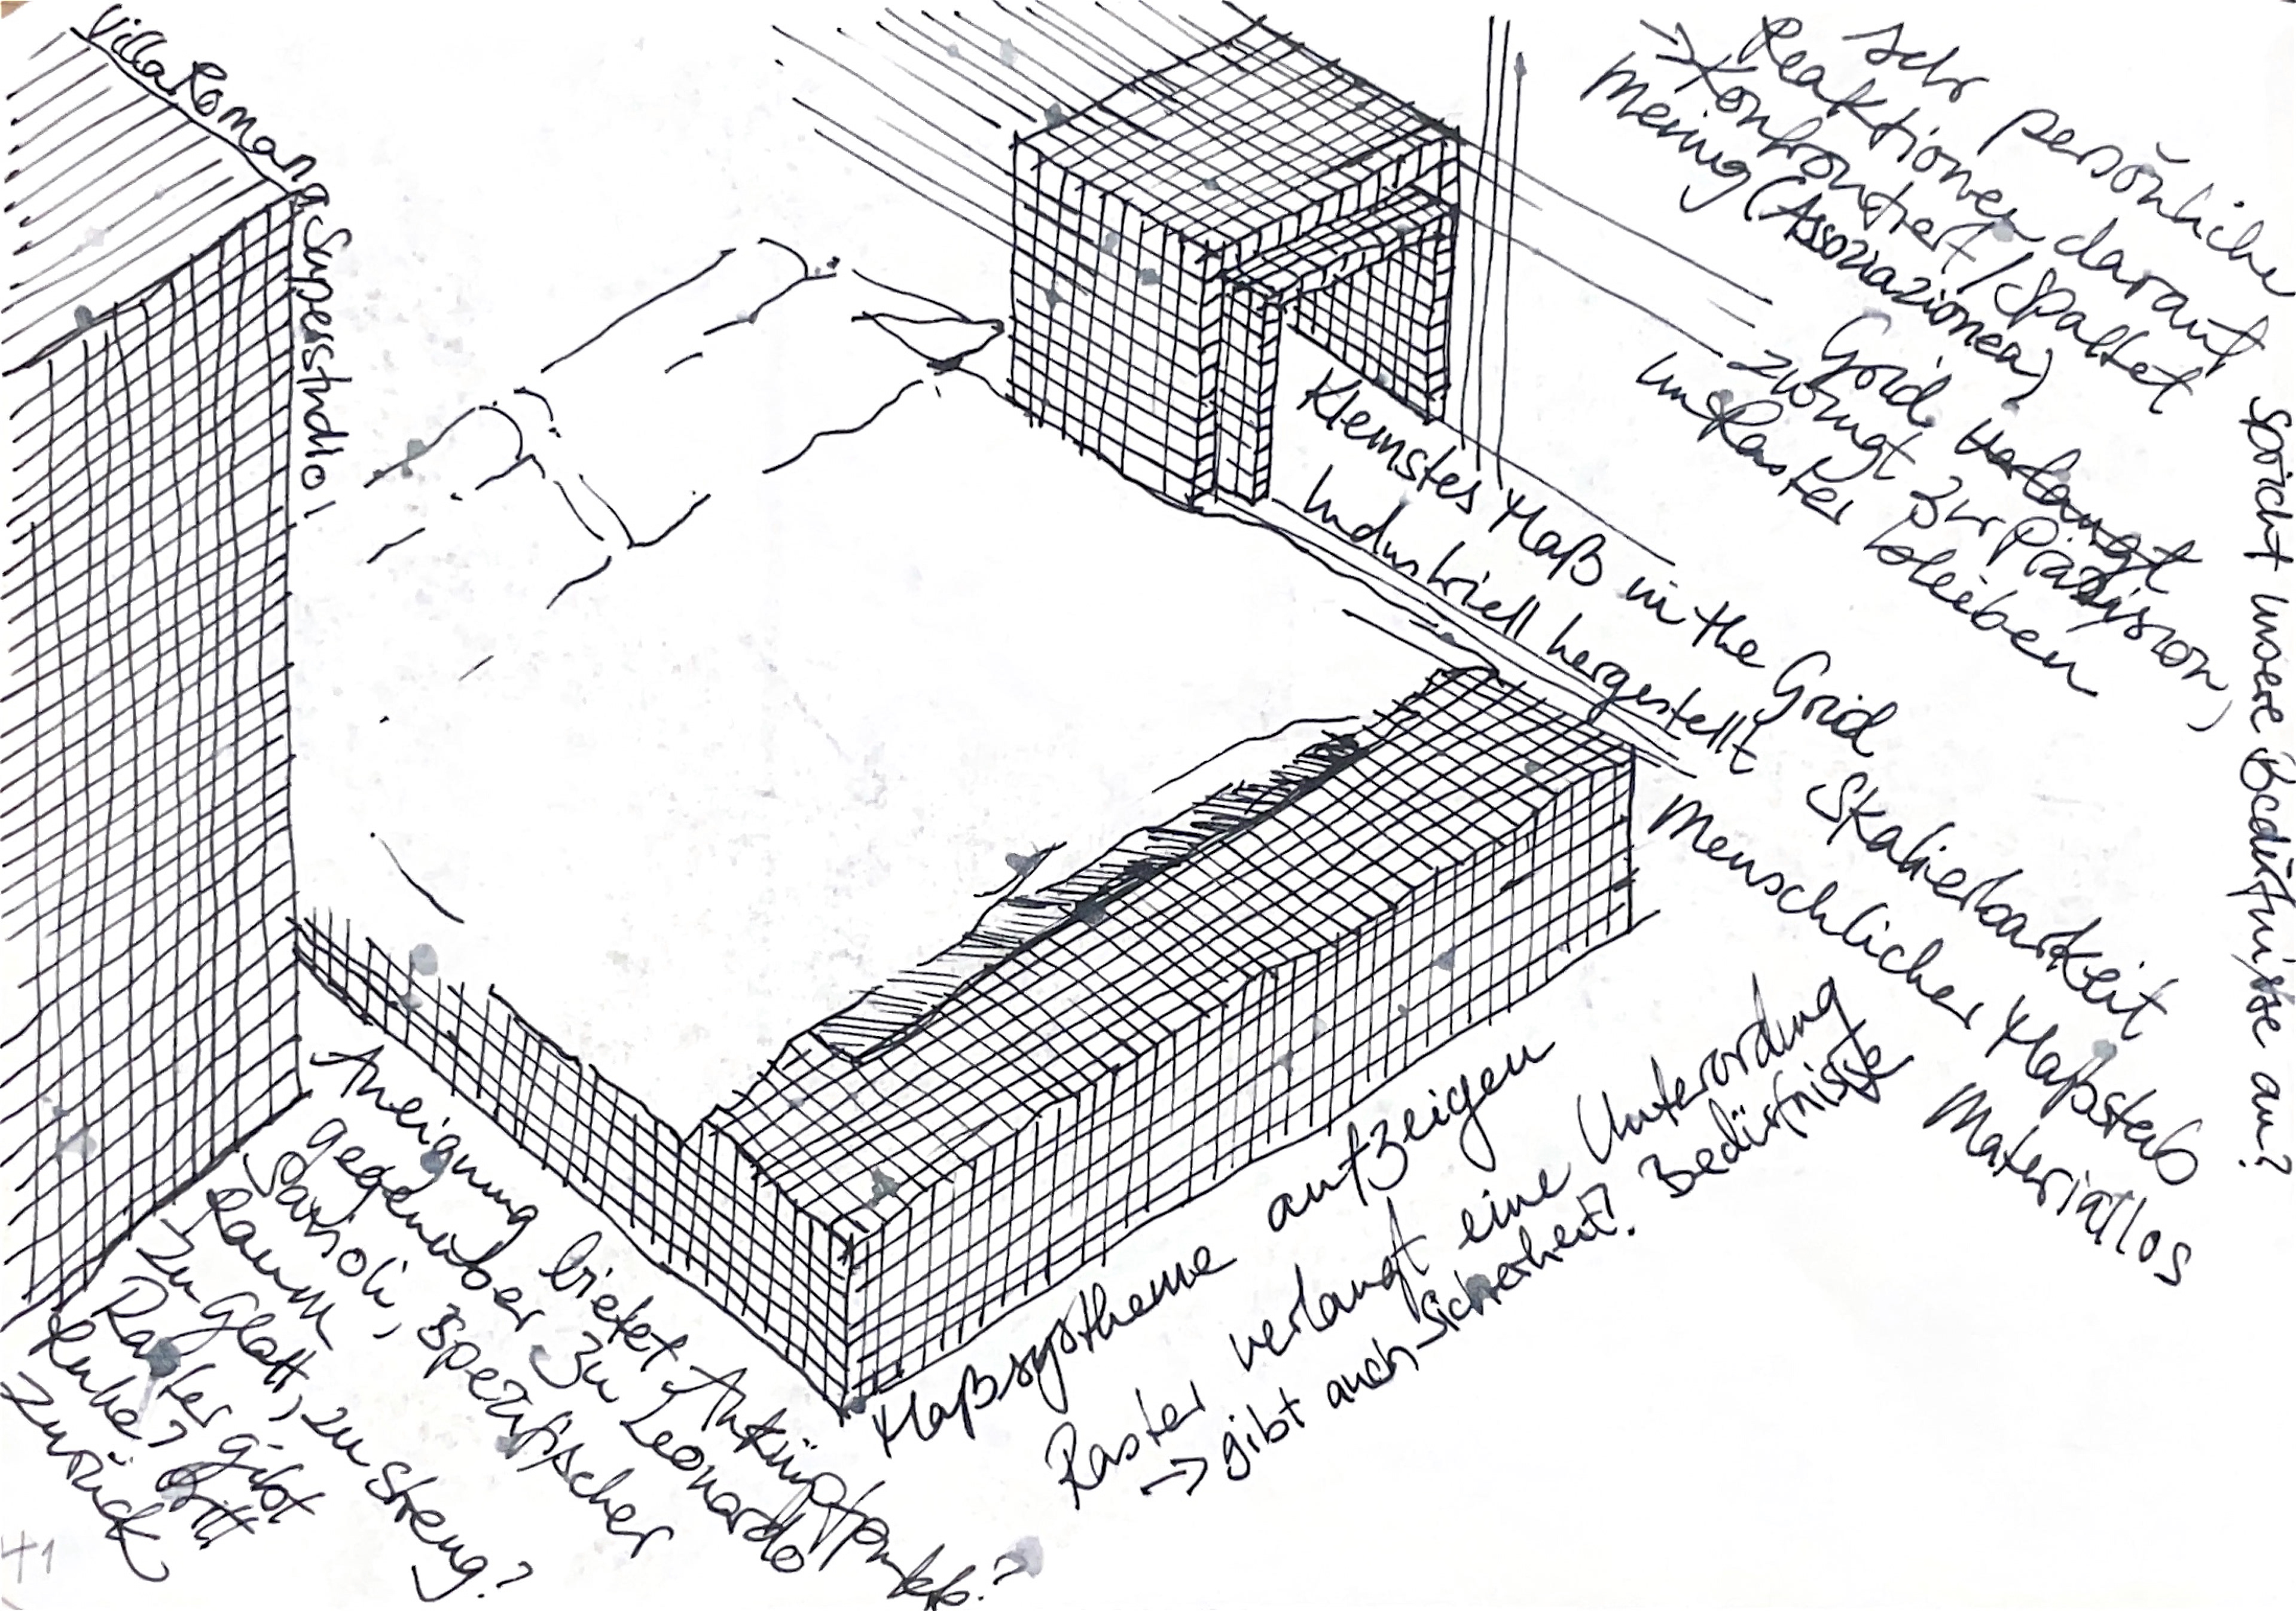 Villa Romana
Superstudio!
Sehr persönliche
Reaktionen darauf
→ Konfrontiert/Spaltet
Meinug (Assoziazionen)
Grid verlangt
zwingt zur Präzision,
im Raster bleiben
Spricht unsere Bedürfnisse an?
Kleinstes Maß in the Grid
Industriell hergestellt
Skalierbarkeit
Menschlicher Maßstab
Materiallos
Maßsystheme aufzeigen
Raster verlangt eine Unterordnug
→ gibt auch Sicherheit! Bedürfnisse
Aneignung bietet Anknüpfpunkte?
gegenüber zu Leonardo
Savioli, spezifischer
Raum
Zu Glatt, zu streng?
Raster gibt
Ruhe, tritt
zurück
41